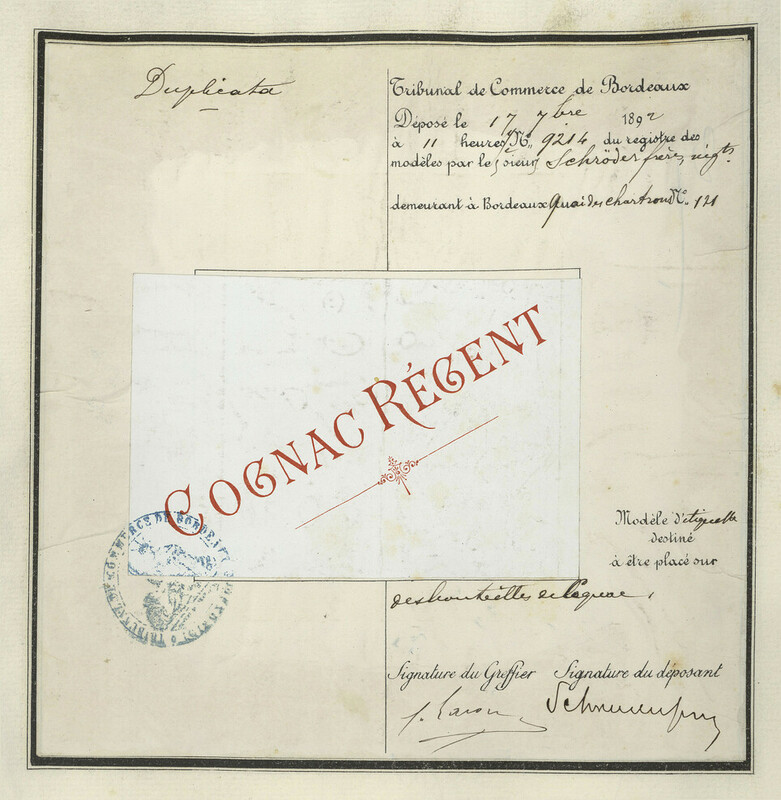 Duplicata
Tribunal de Commerce de Bordeaux
Déposé le 17 7bre 1892
à 11 heures, No. 9214 du registre des
modèles par le sieur Schröder frères négts.
demeurant à Bordeaux quai des chartrons No. 121
COGNAC RÉGENT
Modèle d'étiquette
destiné
à être placé sur
des bouteilles de Cognac,
Signature du Greffier Signature du déposant
TRIBUNAL DE COMMERCE DE BORDEAUX